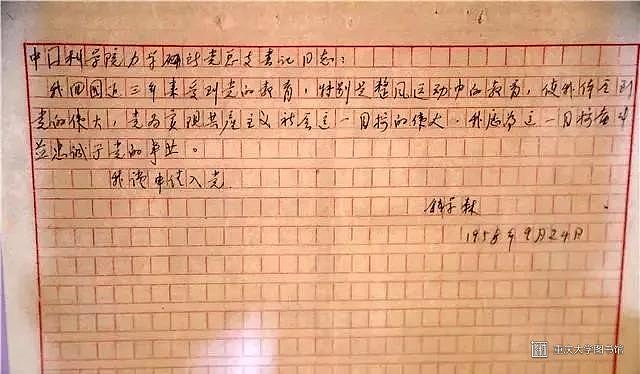 中国科学院力学研究所党总支书记同志：
我回国近三年来受到党的教育，特别是整风运动中的教育，使我体会到
党的伟大，党为实现共产主义社会这一目标的伟大。我愿为这一目标奋斗
并忠诚于党的事业。
我谨申请入党
钱学森
1958年9月24日
重庆大学图书馆